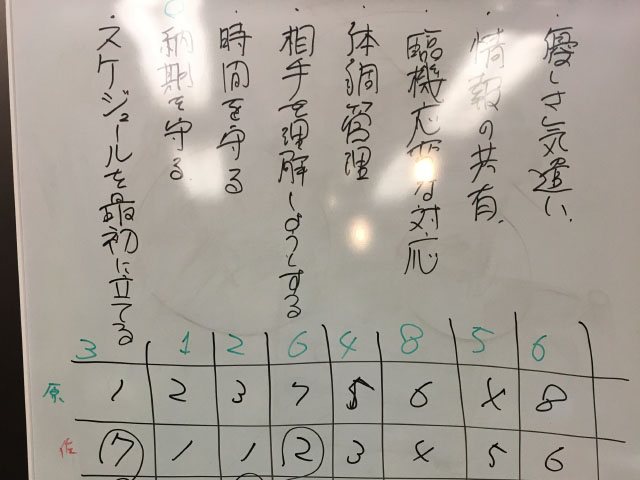 ・優しさ気遣い
・情報の共有
・臨機応変な対応
・体調管理
・相手を理解しようとする
・時間を守る
納期を守る
・スケジュールを最初に立てる
3 1 2 6 4 8 5 6
原 1 2 3 7 5 6 4 8
佐 7 1 1 2 3 4 5 6